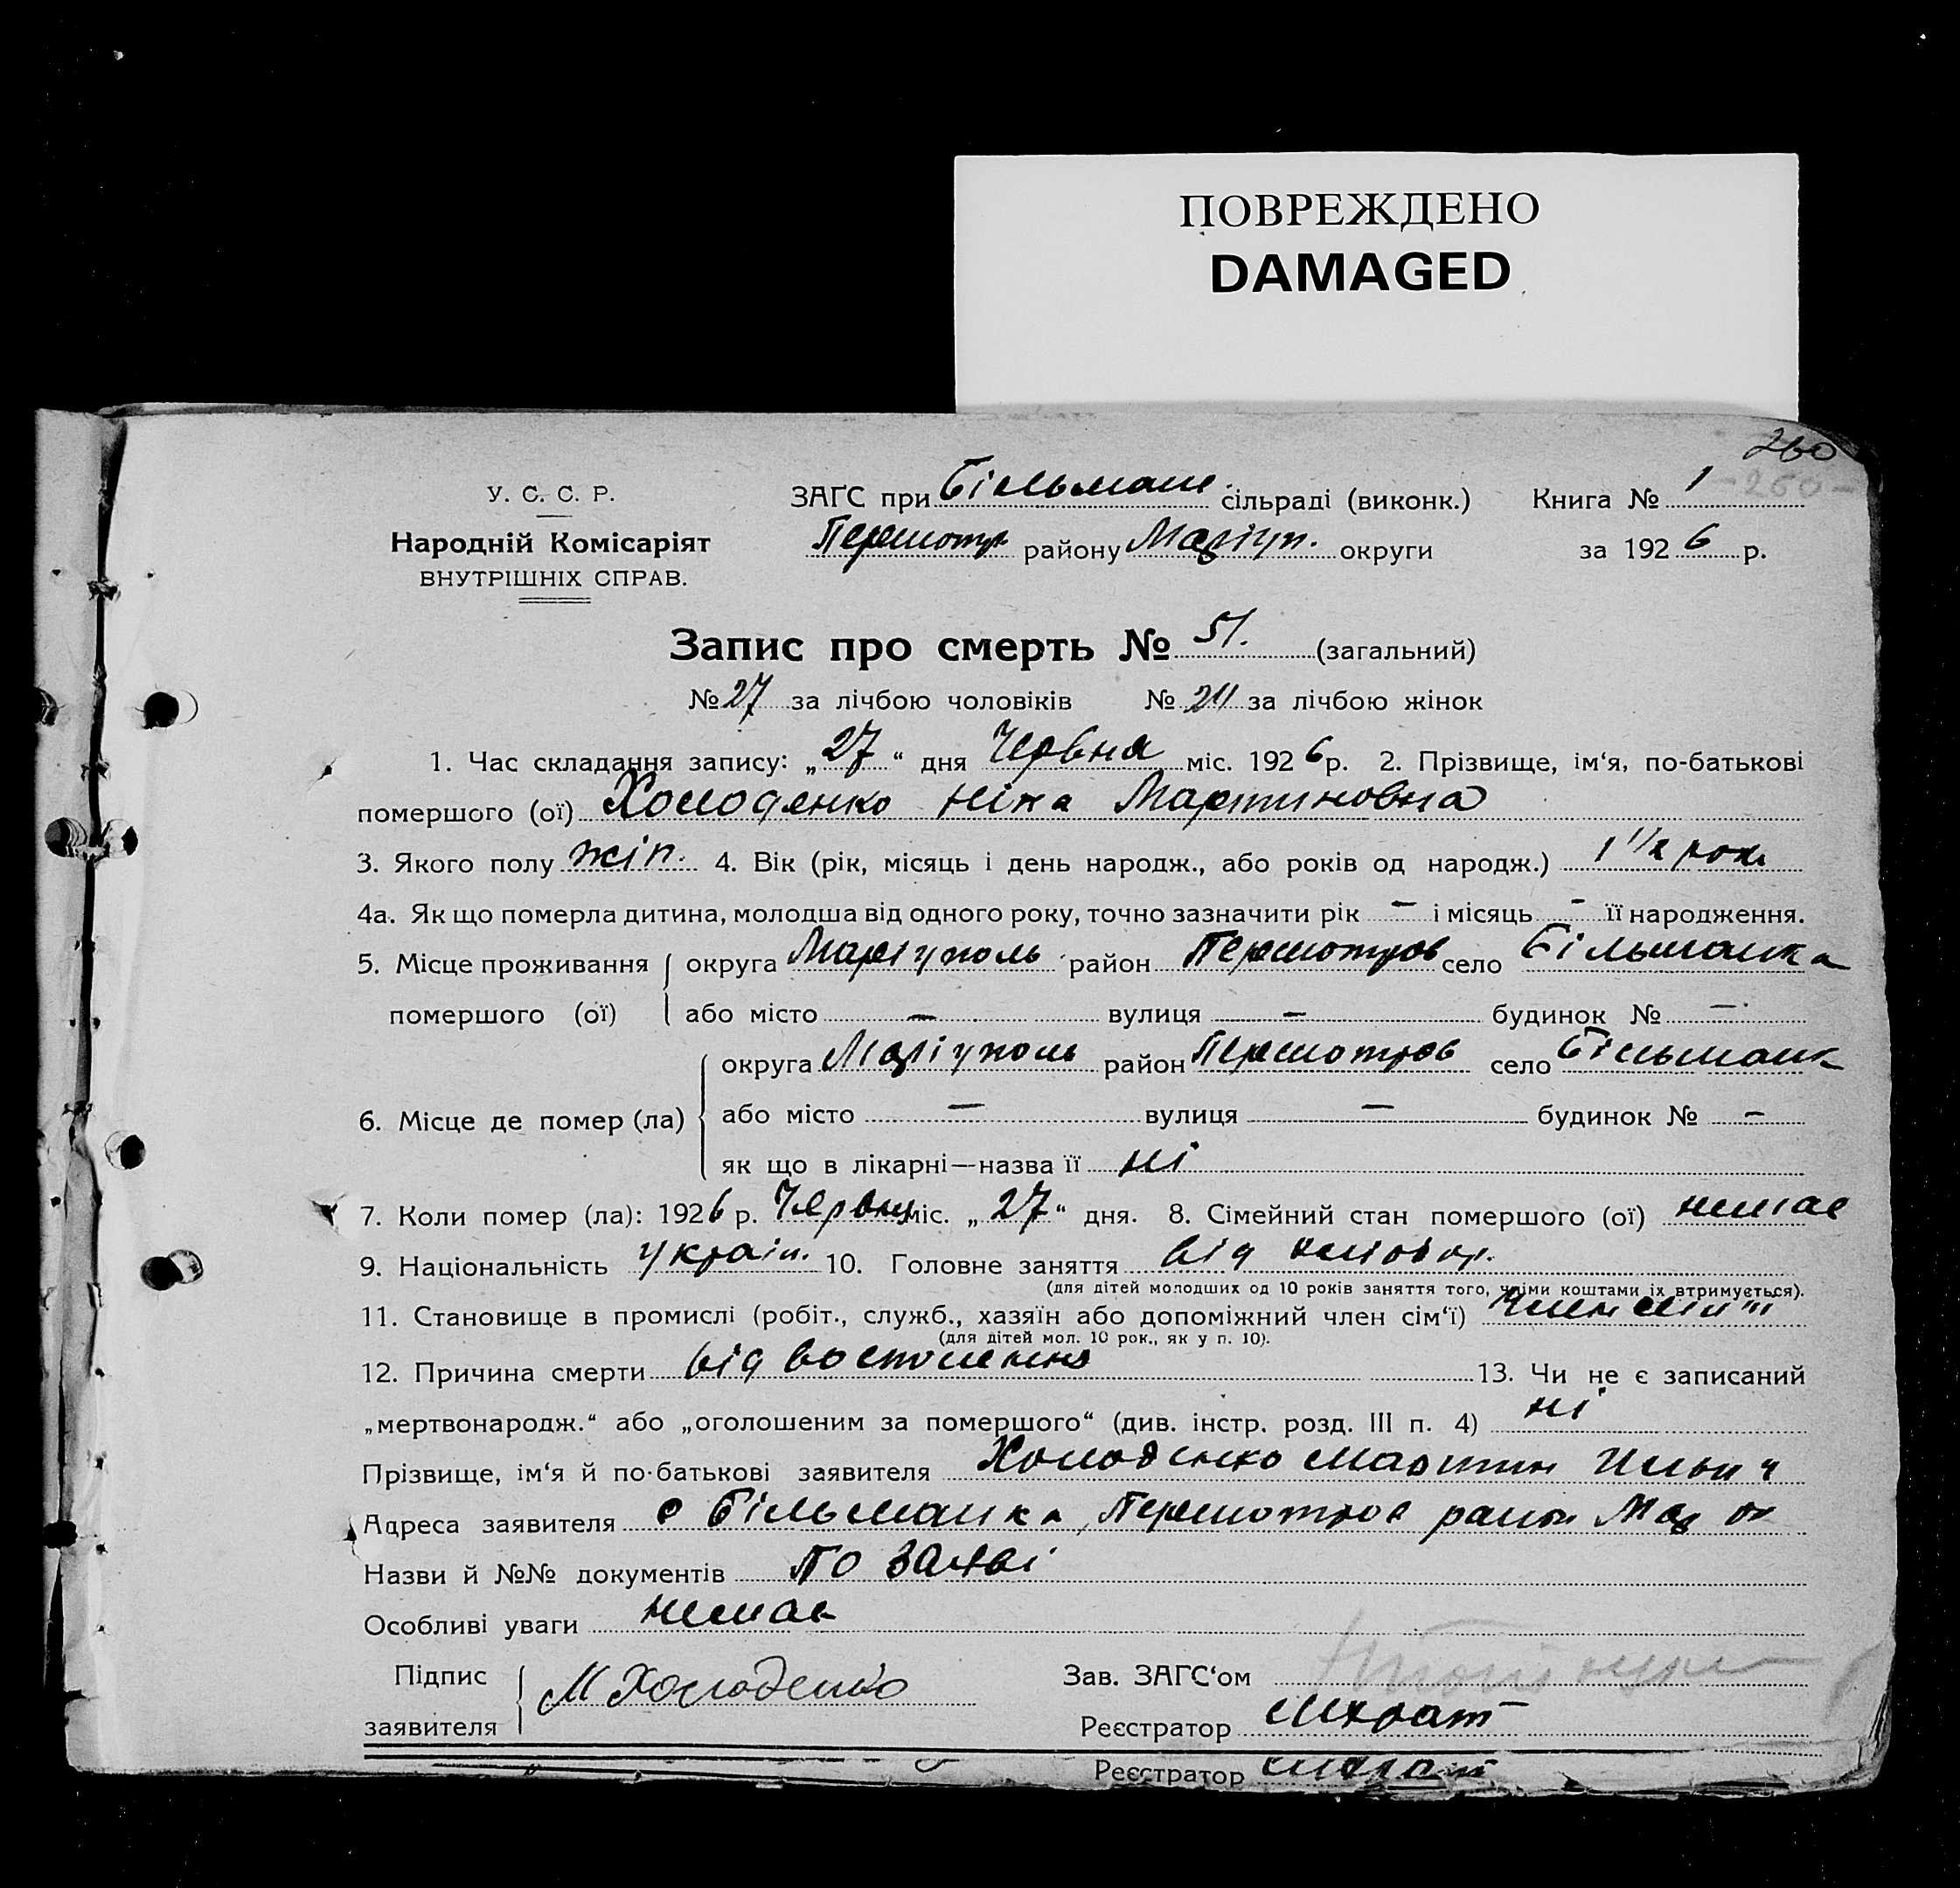 ПОВРЕЖДЕНО
DAMAGED
260
У. С. С. Р. ЗАҐС при Більман. сільраді (виконк.) Книга № 1 -260-
Народній Комісаріят району Маріуп. округи за 1926 р.
ВНУТРІШНІХ СПРАВ.
Запис про смерть № 51. (загальний)
№ 27 за лічбою чоловіків № 24 за лічбою жінок
1. Час складання запису: „27“ дня Червня міс. 1926 р. 2. Прізвище, ім‘я, по-батькові
помершого (ої) Холоденко Ніна Мартиновна
3. Якого полу жін. 4. Вік (рік, місяць і день народж., або років од народж.) 1 1/2 рок.
4а. Як що померла дитина, молодша від одного року, точно зазначити рік – і місяць - її народження.
5. Місце проживання округа Маріуполь район село Більманка
помершого (ої) або місто – вулиця – будинок № –
округа Маріуполь район село Більманк
6. Місце де помер (ла) або місто – вулиця – будинок № –
як що в лікарні—назва її ні
7. Коли помер (ла): 1926 р. Червня міс. „27“ дня. 8. Сімейний стан помершого (ої) немає
9. Національність україн. 10. Головне заняття від
(для дітей молодших од 10 років заняття того, чиїми коштами їх втримується).
11. Становище в промислі (робіт., служб., хазяїн або допоміжний член сім‘ї)
(для дітей мол. 10 рок., як у п. 10).
12. Причина смерти від 13. Чи не є записаний
„мертвонародж.“ або „оголошеним за помершого“ (див. інстр. розд. III п. 4) ні
Прізвище, ім‘я й по-батькові заявителя Холоденко Мартин Ильич
Адреса заявителя с Більманка,
Назви й №№ документів по заяві
Особливі уваги немає
Підпис М Холоденко Зав. ЗАҐС‘ом
заявителя Реєстратор
Реєстратор